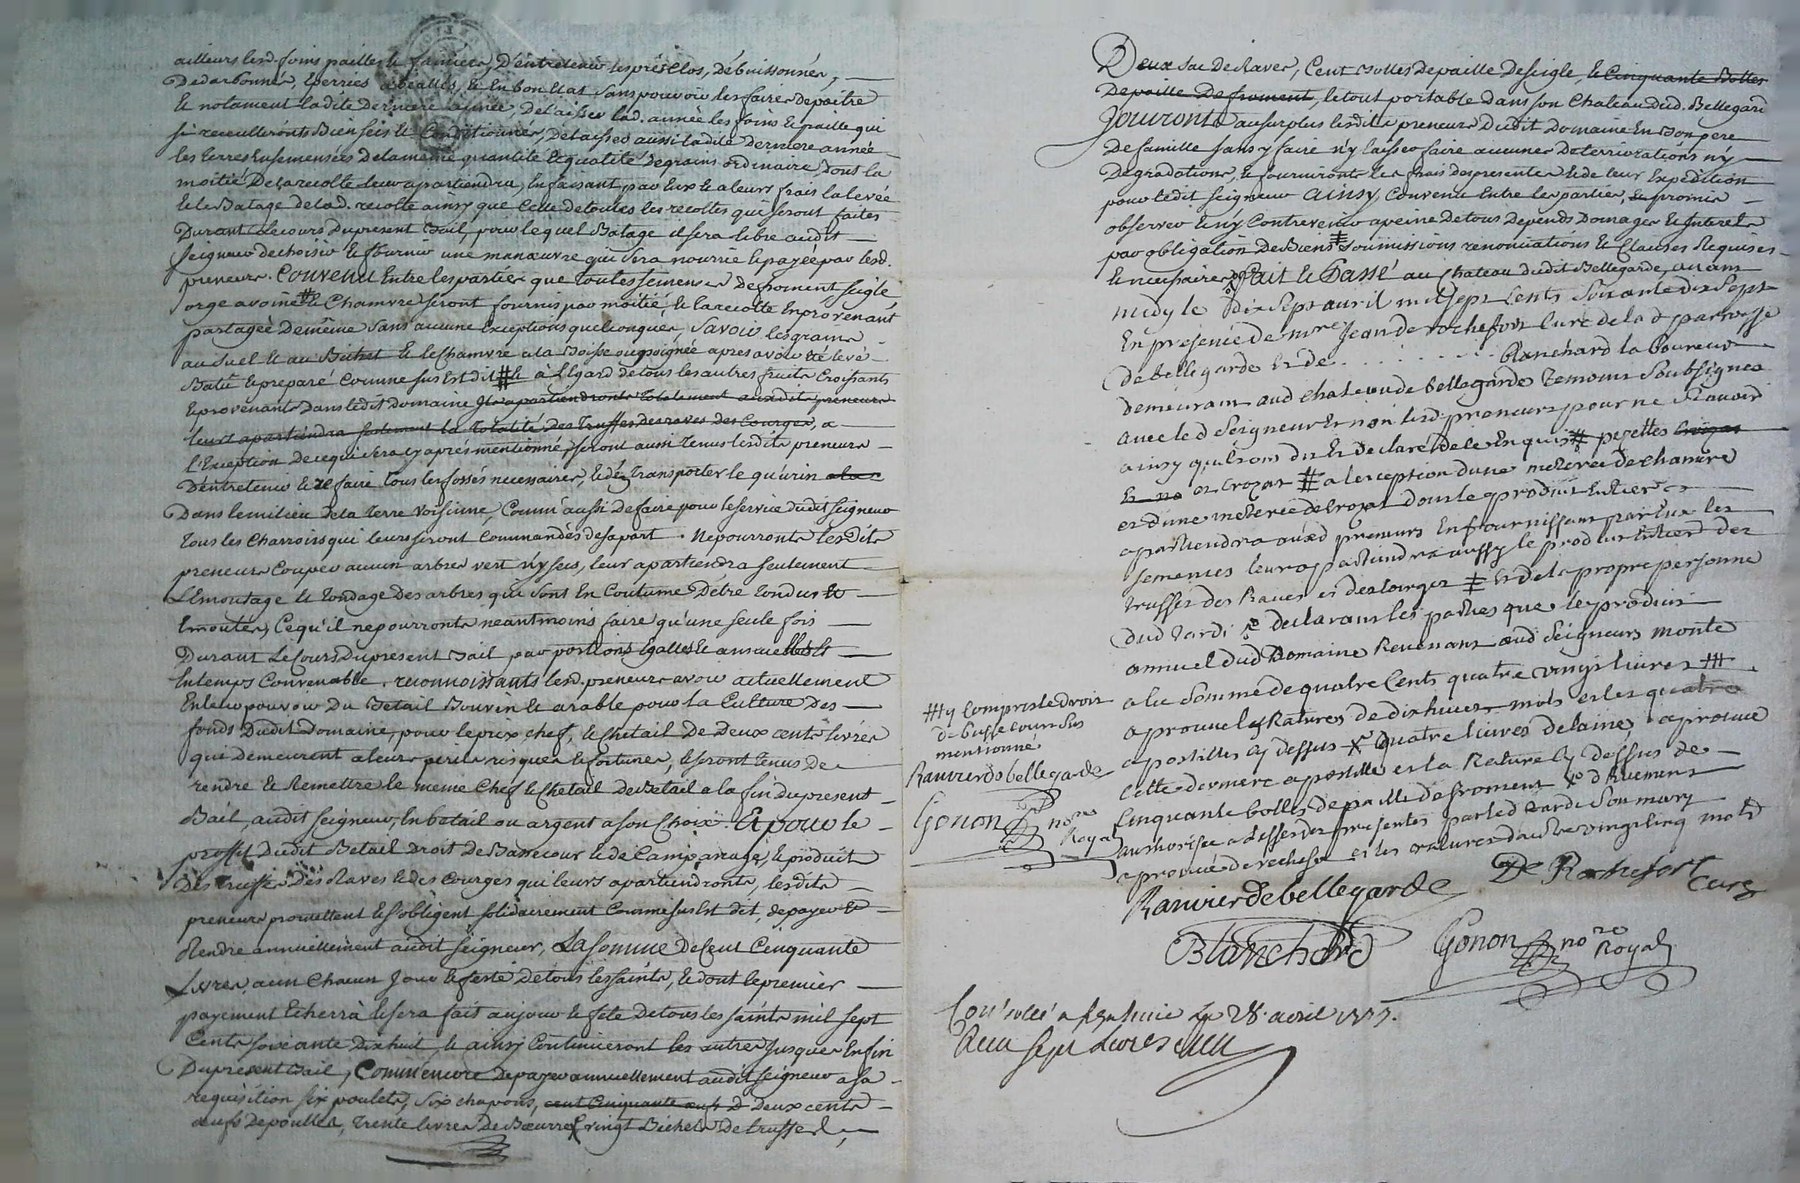 ailleurs lesd. foins paille & fumiers, D'entretenir les prés clos, débuissonnés,
& notament ladite Derniere année, Delaisser lad. année les foins & paille qui
se recueilleronts Bien secs & Conditionnés, Delaisser aussi ladite Derniere année
les terres Ensemensées Delamême quantité & qualité de grains ordinaire, Dont la
moitié De la recolte leur apartiendra, En faisant par Eux & a leurs frais la levée
& le Batage de lad. recolte ainsy que Celle de toutes les recoltes qui seront faites
Durant le cours Dupresent Bail, pour lequel Batage il sera libre audit
Seigneur de choisir & fournir une manœuvre qui sera nourrie & payée par lesd.
preneurs. Convenu Entre les parties que toutes semences De froment seigle
orge avoine # & Chamvre seront fournis par moitié, & la recolte En provenant
partagée De même Sans aucune Exceptions quelconques, Savoir les grains
au suel & au Bichet & le Chamvre a la Boisse ou poignée apres avoir été levé
Batû & preparé Comme sus Est dit # & à L'égard de tous les autres fruits Croissants
& provenants Dans ledit Domaine Ils apartiendronts totalement auxdits preneurs
leurs apartiendra seulement la totalité des truffes des raves des Courges, a
L'Exception de ce qui sera cy après mentionné, seront aussi tenus lesdits preneurs
D'entretenir & refaire tous les fossés necessaires, & de transporter le qu'urin
Dans le milieu de la terre voisinne, Comm'aussi de faire pour le service dudit seigneur
tous les Charrois qui leurs seront Commandés de sa part. Ne pourronts lesdits
preneurs Couper aucun arbres vert n'y secs, leur apartiendra seulement
L'Emoutage & tondage Des arbres qui sont En Coutume D'être tondus &
Emoutés, Ce qu'il ne pourronts néantmoins faire qu'une seule fois
Durant Le Cours Dupresent Bail par portions Egalles & annuelles &
En tems Convenable. reconnoissants lesd. preneurs avoir actuellement
En leur pouvoir Du Betail Bouvin & arable pour la Culture Des
fonds Dudit Domaine, pour le prix, chef, & Chetail de Deux cents livres
qui demeurent a leurs perils risques & fortunes, & seront tenus De
rendre & Remettre le même Chef & Chetail De Betail a la fin du present
Bail, audit seigneur, En betail ou argent a son Choix. Et pour le
proffit Dudit Betail Droit De Bassecour & de Campanage, & produit
Des truffes Des Raves & des Courges qui leurs apartiendronts, lesdits
preneurs promettent & s'obligent solidairement Comme sus Est dit, de payer &
Rendre annuellement audit seigneur, La somme de Cent Cinquante
Livres, a un Chacun Jour & feste de tous les saints, & dont le premier
payement Echerra & sera fait au jour & fête de tous les saints mil sept
Cents soixante Dix huit, & ainsy Continueront les autres Jusques En fin
Dupresent Bail, Comm'encore De payer annuellement audit seigneur a sa
requisition six poulets, six chapons, cent Cinquante œufs D Deux cents
œufs de poulles, trente livres De Bœurre & vingt Bichets De truffes,
Deux sac De Raves, Cent Bottes de paille De seigle, & Cinquante Bottes
De paille De froment, le tout portable dans son Chateau dud. Bellegard
Jouironts au surplus lesdits preneurs Dudit Domaine En Bon pere
De famille sans y faire n'y laisser faire aucunes Deterriorations n'y
Degradations, & fournironts les frais des presentes & de leur Expedition
pour ledit seigneur Ainsy Convenu Entre les parties, & promis
observer & n'y Contrevenir a peine de tous Depends Domages & Interets
par obligation De Biens # soumissions renonciations & Clauses Requises
& necessaires fait & Passé au Chateau dudit Bellegarde, avant
midy le dix sept avril mil sept cents soixante dix sept
En présence de mre Jean de rochefort Curé de la d parroisse
de bellegarde & de . . . . . . . . Blanchard la boureur
demeurant aud chateau de bellegarde temoins soubsignés
avec led Seigneur Et non lesd. preneurs pour ne sçavoir
ainsy qu'ils ont dit Et declaré de ce Enquis # pezettes
et crozat # a lexception dune meterée de chanvre
et d'une meterée de trop dont le produit Entier
apartiendra auxd preneurs En fournissant par Eux les
semences leur apartiendra aussy le produit Entier des
truffes des Raves et des courges # Et de la propre personne
dud tardi declarant les parties que le produit
annuel dud Domaine Revenant aud Seigneurs monte
a la somme de quatre Cents quatre vingt livres #
aprouve les Ratures de dix huit mots et les quatre
apostilles cy dessus quatre livres de laine, aprouve
cette derniere apostille et la Rature cy dessus de
Cinquante bottes de paille de froment
authorisée a l'effet des presentes par led tardi son mary
aprouvé de rechef et les ratures d'autre vingt cinq mots
# y compris le droit
de basse cour sus
mentionné
Ranvier de bellegarde
Gonon nore
Royal
Ranvier de bellegarde
De Rochefort
Curé
Blanchard
Gonon nore
Royal
Con'rollé a le 28 avril 1777.
Reçu sept livres